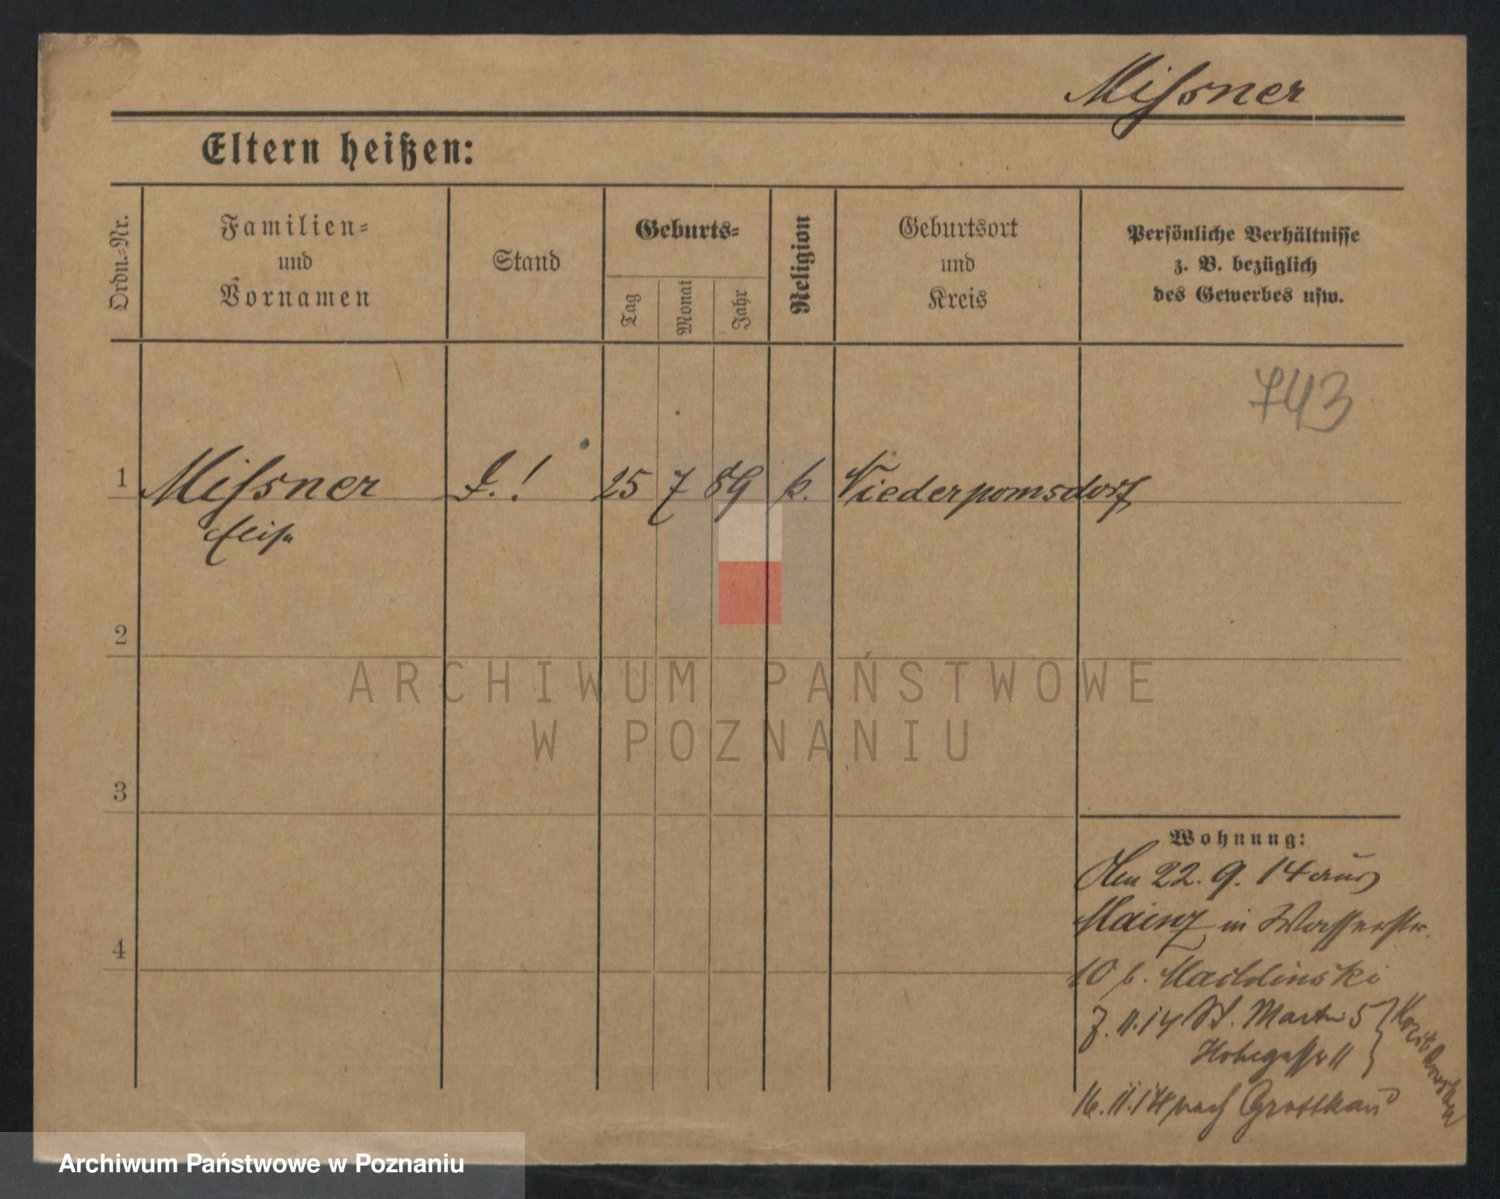 Missner
Eltern heißen:
Ordn.-Nr.
Familien-
und
Vornamen
Stand
Geburts-
Tag
Monat
Jahr
Religion
Geburtsort
und
Kreis
Persönliche Verhältnisse
z. B. bezüglich
des Gewerbes usw.
743
1 Missner 25 7 89 k. Niederpomsdorf
2
3
4
ARCHIWUM PAŃSTWOWE
W POZNANIU
Wohnung:
Den 22. 9. 14 aus
Mainz in Wasserstr.
10 b.
7. 11. 14 St. Martin 5
Hohegasse 11
16. 11. 14 nach Grottkau
Archiwum Państwowe w Poznaniu